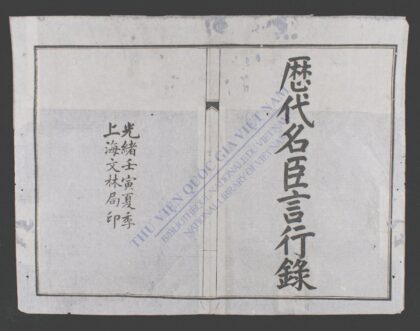 歴代名臣言行錄
光緒壬寅夏季
上海文林局印
THƯ VIỆN QUỐC GIA VIỆT NAM
BIBLIOTHÈQUE NATIONALE DU VIETNAM
NATIONAL LIBRARY OF VIETNAM